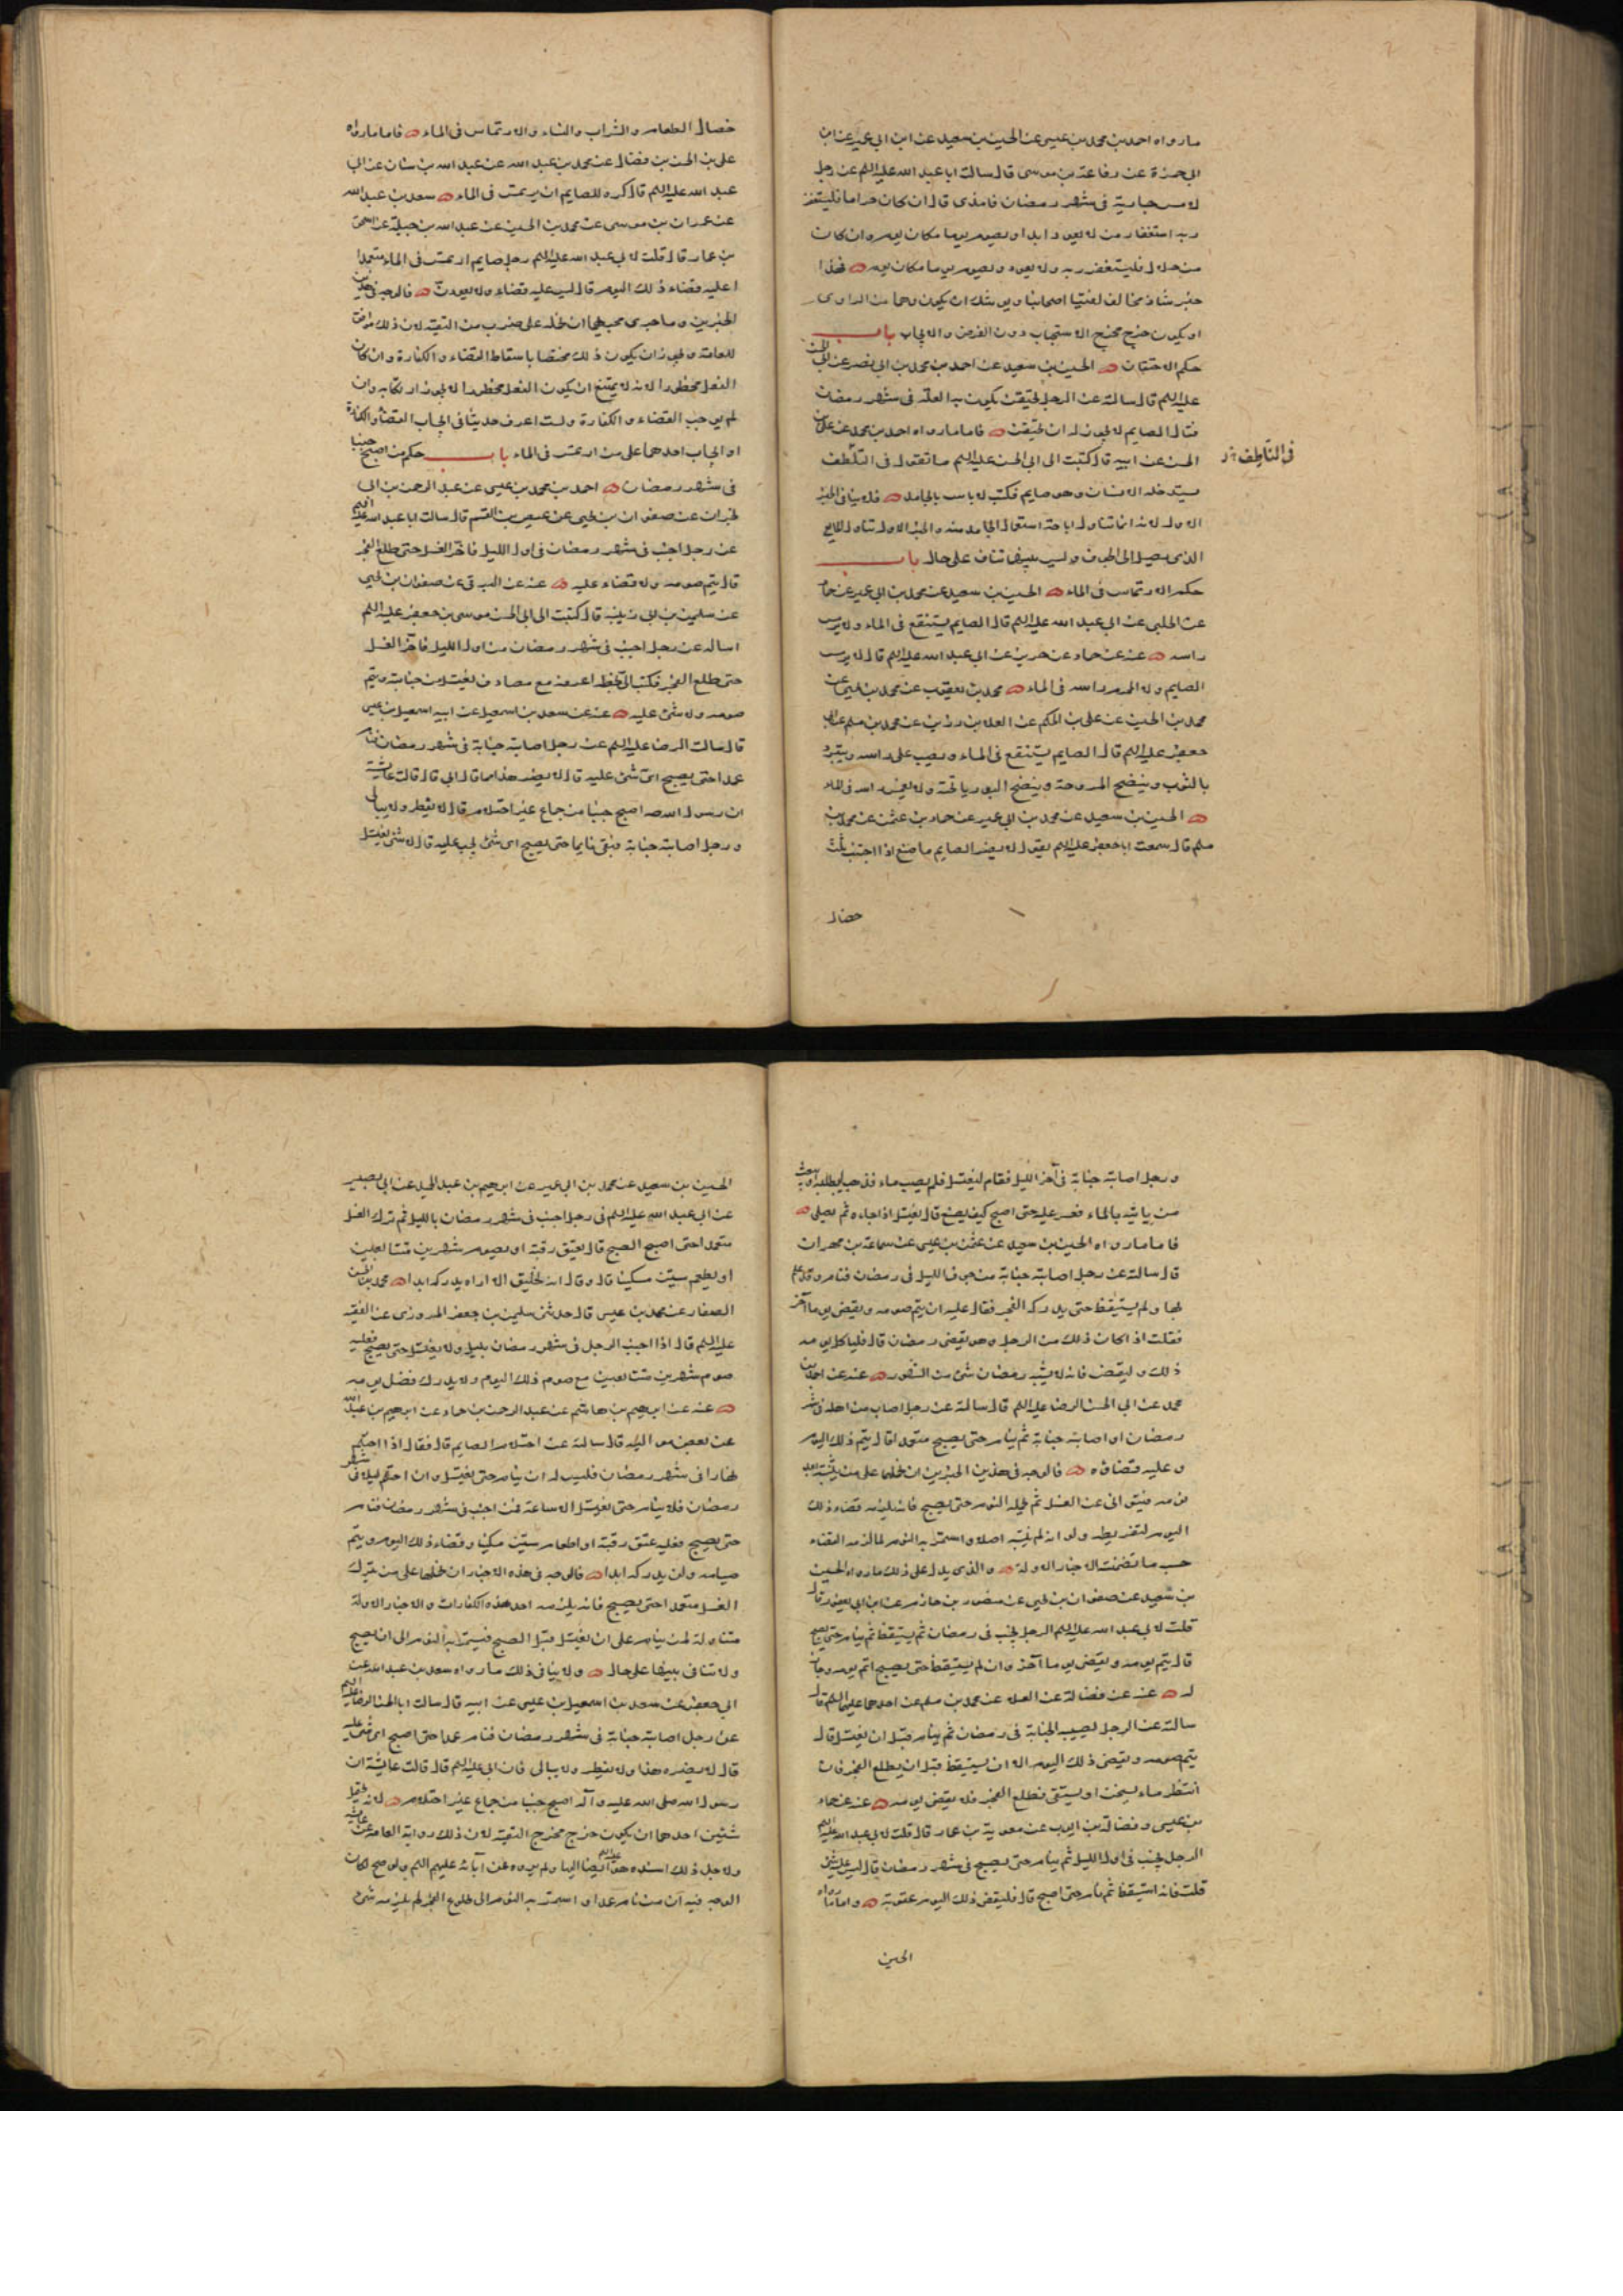 ما رواه احمد بن محمد بن عيسى عن الحسين بن سعيد عن ابن ابي عمير عن ابن
ابي حمزة عن رفاعة بن موسى قال سالت ابا عبد الله عليه السلم عن رجل
لامس جارية في شهر رمضان فامذى قال ان كان حراما فليستغفر
ربه استغفار من لا يعود ابدا ويصوم يوما مكان يوم وان كان
من حلال فليستغفر ربه ولا يعود ويصوم يوما مكان يوم فهذا
خبر شاذ مخالف لفتيا اصحابنا ويوشك ان يكون وهما من الراوي
او يكون خرج مخرج الاستحباب دون الفرض والايجاب باب
حكم الاحتقان الحسين بن سعيد عن احمد بن محمد بن ابي نصر عن ابي الحسن
عليه السلم قال سالته عن الرجل يحتقن يكون به العلة في شهر رمضان
فقال الصايم لا يجوز له ان يحتقن فاما ما رواه احمد بن محمد عن علي بن
الحسن عن ابيه قال كتبت الى ابي الحسن عليه السلم ما تقول في التلطف
في التلطف
يستدخله الانسان وهو صايم فكتب لا باس بالجامد فلا ينافي الخبر
الاول لانه انما تناول اباحة استعمال الجامد منه والخبر الاول تناول المايع
الذي يصل الى الجوف وليس بينهما تناف على حال باب
حكم الارتماس في الماء الحسين بن سعيد عن محمد بن ابي عمير عن حماد
عن الحلبي عن ابي عبد الله عليه السلم قال الصايم يستنقع في الماء ولا يرمس
راسه عنه عن حماد عن حريز عن ابي عبد الله عليه السلم قال لا يرمس
الصايم ولا المحرم راسه في الماء محمد بن يعقوب عن محمد بن يحيى عن
محمد بن الحسين عن علي بن الحكم عن العلا بن رزين عن محمد بن مسلم عن ابي
جعفر عليه السلم قال الصايم يستنقع في الماء ويصب على راسه ويتبرد
بالثوب وينضح المروحة وينضح البوريا تحته ولا يغمس راسه في الماء
الحسين بن سعيد عن محمد بن ابي عمير عن حماد بن عثمن عن محمد بن
مسلم قال سمعت ابا جعفر عليه السلم يقول لا يضر الصايم ما صنع اذا اجتنب ثلث
خصال
خصال الطعام والشراب والنساء والارتماس في الماء فاما ما رواه
علي بن الحسن بن فضال عن محمد بن عبد الله عن عبد الله بن سنان عن ابي
عبد الله عليه السلم قال كره للصايم ان يرتمس في الماء سعد بن عبد الله
عن عمران بن موسى عن محمد بن الحسين عن عبد الله بن جبلة عن اسحق
بن عمار قال قلت لابي عبد الله عليه السلم رجل صايم ارتمس في الماء متعمدا
اعليه قضاء ذلك اليوم قال ليس عليه قضاء ولا يعودن فالوجه في هذين
الخبرين وما جرى مجراهما ان نحمله على ضرب من التقية لان ذلك موافق
للعامة ويجوز ان يكون ذلك مختصا باسقاط القضاء والكفارة وان كان
الفعل محظورا لانه لا يمتنع ان يكون الفعل محظورا لا يجوز ارتكابه وان
لم يوجب القضاء والكفارة ولست اعرف حديثا في ايجاب القضاء والكفارة
او ايجاب احدهما على من ارتمس في الماء باب حكم من اصبح جنبا
في شهر رمضان احمد بن محمد بن عيسى عن عبد الرحمن بن ابي
نجران عن صفوان بن يحيى عن عيص بن القسم قال سالت ابا عبد الله عليه السلم
عن رجل اجنب في شهر رمضان في اول الليل فاخر الغسل حتى طلع الفجر
قال يتم صومه ولا قضاء عليه عنه عن البرقي عن صفوان بن يحيى
عن سليمن بن ابي زينبه قال كتبت الى ابي الحسن موسى بن جعفر عليه السلم
اساله عن رجل اجنب في شهر رمضان من اول الليل فاخر الغسل
حتى طلع الفجر فكتب الي بخطه اعرفه مع مصادف يغتسل من جنابته ويتم
صومه ولا شئ عليه عنه عن سعد بن اسمعيل عن ابيه اسمعيل بن عيسى
قال سالت الرضا عليه السلم عن رجل اصابته جنابة في شهر رمضان فنام
عمدا حتى يصبح اي شئ عليه قال لا يضره هذا قال ابي قال قالت عايشة
ان رسول الله صه اصبح جنبا من جماع غير احتلام قال لا يفطر ولا يبالي
ورجل اصابته جنابة فبقى نايما حتى يصبح اي شئ يجب عليه قال لا شئ يغتسل
ورجل اصابته جنابة في آخر الليل فقام ليغتسل فلم يصب ماء فذهب ليطلبه او بعث
من ياتيه بالماء فعسر عليه حتى اصبح كيف يصنع قال يغتسل اذا جاءه ثم يصلي
فاما ما رواه الحسين بن سعيد عن عثمن بن عيسى عن سماعة بن مهران
قال سالته عن رجل اصابته جنابة من جوف الليل في رمضان فنام وقد علم
بها ولم يستيقظ حتى يدركه الفجر فقال عليه ان يتم صومه ويقضي يوما آخر
فقلت اذا كان ذلك من الرجل وهو يقضي رمضان قال فلياكل يومه
ذلك وليقض فانه لا يشبه رمضان شئ من الشهور عنه عن احمد بن
محمد عن ابي الحسن الرضا عليه السلم قال سالته عن رجل اصاب من اهله في شهر
رمضان او اصابته جنابة ثم ينام حتى يصبح متعمدا قال يتم ذلك اليوم
وعليه قضاؤه فالوجه في هذين الخبرين ان نحملهما على من ينتبه بعد
نومه فيتوانى عن الغسل ثم يحمله النوم حتى يصبح فانه يلزمه قضاء ذلك
اليوم لتفريطه ولو انه لم ينتبه اصلا واستمر به النوم لما لزمه القضاء
حسب ما تضمنته الاخبار الاولة والذي يدل على ذلك ما رواه الحسين
بن سعيد عن صفوان بن يحيى عن منصور بن حازم عن ابن ابي يعفور قال
قلت لابي عبد الله عليه السلم الرجل يجنب في رمضان ثم يستيقظ ثم ينام حتى يصبح
قال يتم يومه ويقضي يوما آخر وان لم يستيقظ حتى يصبح اتم يومه وجاز
له عنه عن فضالة عن العلا عن محمد بن مسلم عن احدهما عليهما السلم قال
سالته عن الرجل يصيب الجنابة في رمضان ثم ينام قبل ان يغتسل قال
يتم صومه ويقضي ذلك اليوم الا ان يستيقظ قبل ان يطلع الفجر فان
انتظر ماء يسخن او يستقى فطلع الفجر فلا يقضي يومه عنه عن حماد
بن عيسى وفضالة بن ايوب عن معوية بن عمار قال قلت لابي عبد الله عليه السلم
الرجل يجنب في اول الليل ثم ينام حتى يصبح في شهر رمضان قال ليس عليه شئ
قلت فانه استيقظ ثم نام حتى اصبح قال فليقض ذلك اليوم عقوبة واما ما رواه
الحسين
الحسين بن سعيد عن محمد بن ابي عمير عن ابرهيم بن عبد الحميد عن ابي بصير
عن ابي عبد الله عليه السلم في رجل اجنب في شهر رمضان بالليل ثم ترك الغسل
متعمدا حتى اصبح الصبح قال يعتق رقبة او يصوم شهرين متتابعين
او يطعم ستين مسكينا قال وقال انه لخليق الا اراه يدركه ابدا محمد بن الحسن
الصفار عن محمد بن عيسى قال حدثني سليمن بن جعفر المروزي عن الفقيه
عليه السلم قال اذا اجنب الرجل في شهر رمضان بليل ولا يغتسل حتى يصبح فعليه
صوم شهرين متتابعين مع صوم ذلك اليوم ولا يدرك فضل يومه
عنه عن ابرهيم بن هاشم عن عبد الرحمن بن حماد عن ابرهيم بن عبد الله
عن بعض مواليه قال سالته عن احتلام الصايم قال فقال اذا احتلم
نهارا في شهر رمضان فليس له ان ينام حتى يغتسل وان احتلم ليلا في شهر
رمضان فلا ينام حتى يغتسل الا ساعة فمن اجنب في شهر رمضان فنام
حتى يصبح فعليه عتق رقبة او اطعام ستين مسكينا وقضاء ذلك اليوم ويتم
صيامه ولن يدركه ابدا فالوجه في هذه الاخبار ان نحملها على من يترك
الغسل متعمدا حتى يصبح فانه يلزمه احد هذه الكفارات والاخبار الاولة
متناولة لمن ينام على ان يغتسل قبل الصبح فيستمر به النوم الى ان يصبح
ولا تنافي بينهما على حال ولا ينافي ذلك ما رواه سعد بن عبد الله عن
ابي جعفر عن سعد بن اسمعيل بن عيسى عن ابيه قال سالت ابا الحسن الرضا عليه السلم
عن رجل اصابته جنابة في شهر رمضان فنام عمدا حتى اصبح اي شئ عليه
قال لا يضره هذا ولا يفطر ولا يبالي فان ابي عليه السلم قال قالت عايشة ان
رسول الله صلى الله عليه وآله اصبح جنبا من جماع غير احتلام لانه يحتمل
شيئين احدهما ان يكون خرج مخرج التقية لان ذلك رواية العامة عن عايشة
ولاجل ذلك اسنده هو عليه السلم ايضا اليها ولم يروه عن آبائه عليهم السلم ولو صح لكان
الوجه فيه ان من نام عمدا واستمر به النوم الى طلوع الفجر لم يلزمه شئ